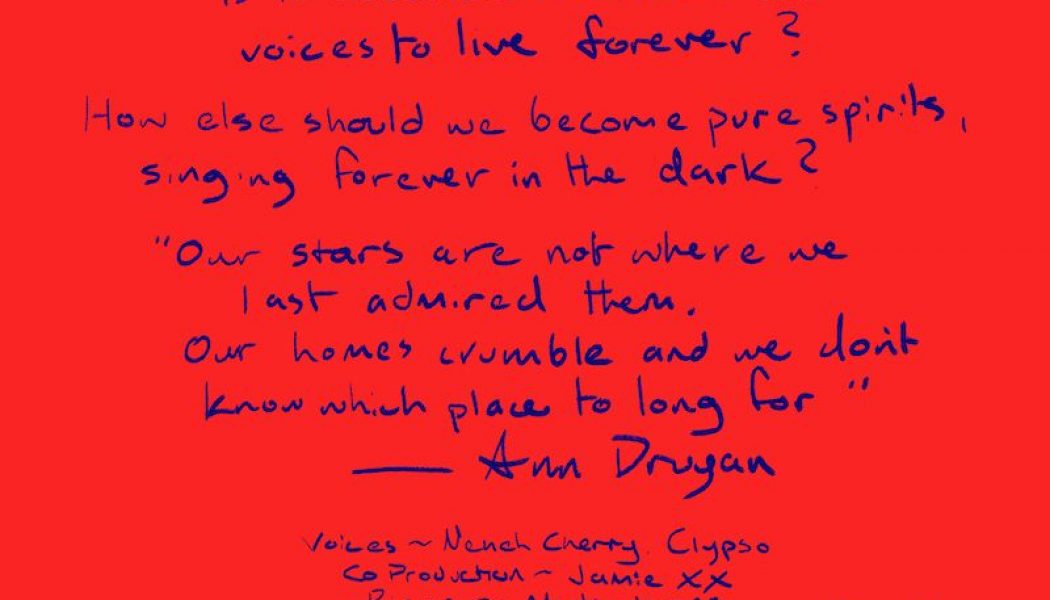 voices to live forever?
How else should we become pure spirits,
singing forever in the dark?
"Our stars are not where we
last admired them.
Our homes crumble and we don't
know which place to long for"
— Ann Druyan
Voices ~ Neneh Cherry. Clypso
Co Production ~ Jamie XX